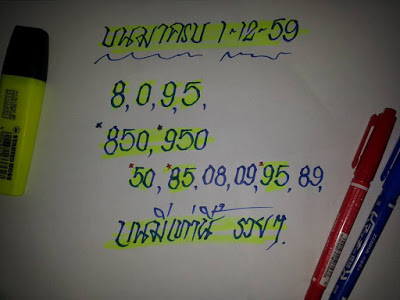 บนมาครบ 1-12-59
8, 0, 9, 5,
*850, *950
*50, *85, 08, 09, *95, 89,
บนมีเท่านี้ รวยๆ